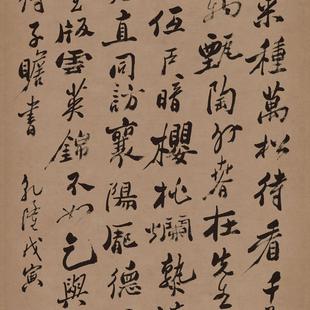 種萬松待看千
甄陶外春在先生
戶暗櫻桃爛熟滴
直同訪襄陽龐德
版雲英錦不如乞與
子瞻書 乾隆戊寅